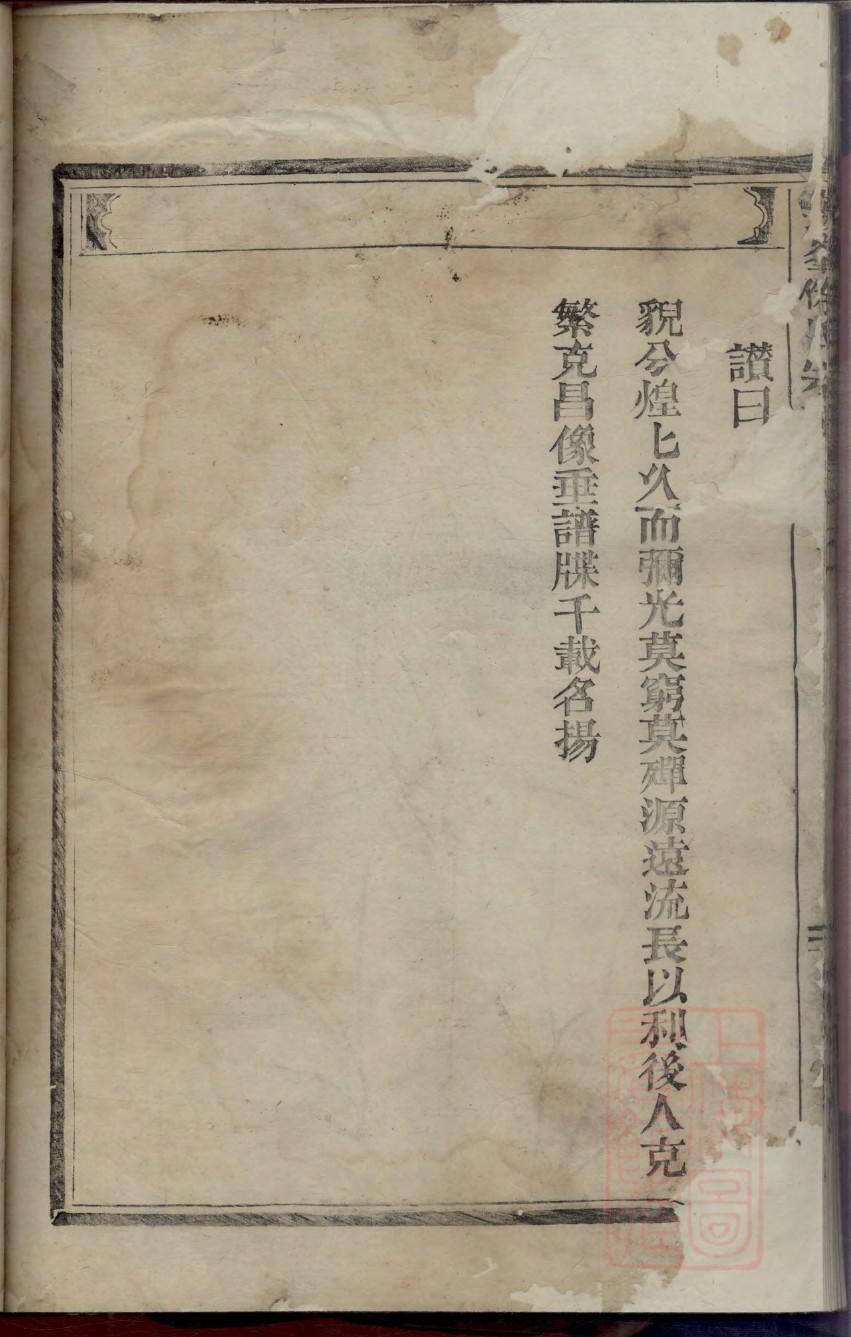 讃曰
貎分煌匕久而彌光莫窮莫殫源遠流長以利後人克
繁克昌像垂譜牒千載名揚